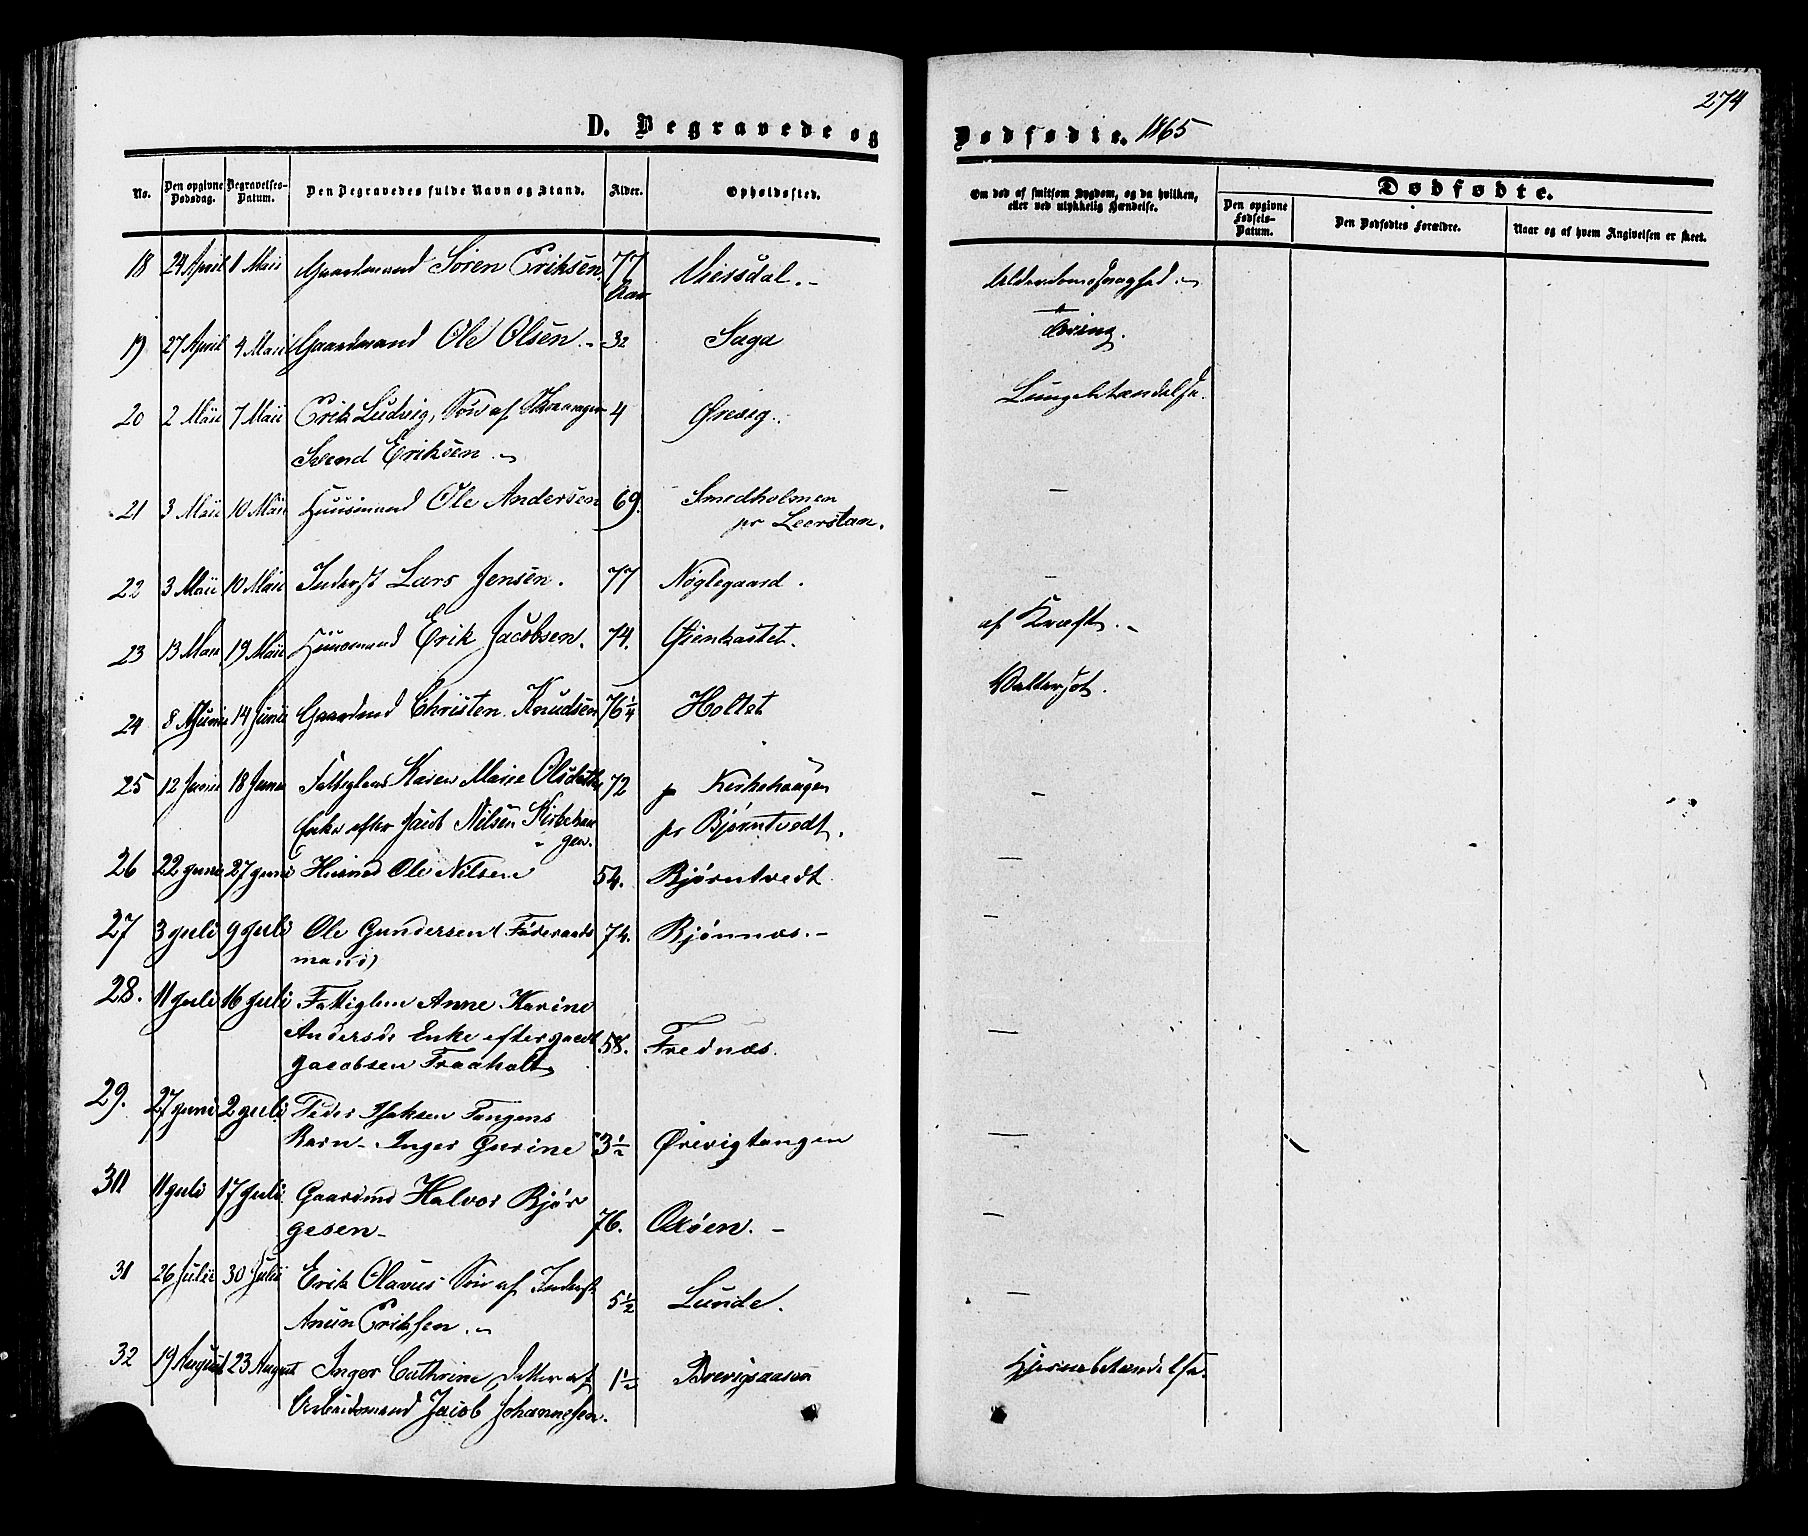 274
D. Begravede og Dødfødte. 1865
No. Den opgivne Dødsdag. Begravelses-Datum. Den Begravedes fulde Navn og Stand. Alder. Opholdssted. Om død af smitsom Sygdom, og da hvilken, eller ved ulykkelig Hændelse. Dødfødte.
Den opgivne Fødsels-Datum. Den Dødfødtes Forældre. Naar og af hvem Angivelsen er skeet.
18 24 April 1 Maii Gaardmand Sören Eriksen 77 Aar Viersdal. Alderdomssvaghed
19 27 April 4 Maii Gaardmand Ole Olsen 32 Saga Tæring.
20 2 Maii 7 Maii Erik Ludvig, Søn af 4 Ørvig. Lungebetændelse.
Svend Eriksen
21 3 Maii 10 Maii Huusmand Ole Andersen 69. Smedholmen —
pr Leerstan.
22 3 Maii 10 Maii Inderst Lars Jensen. 77 Nøglegaard. -
23 13 Maii 19 Maii Huusmand Erik Jacobsen. 74. Øienkastet. af Kræft.
24 8 Junii 14 Junii Gaardmd Christen Knudsen 76 1/4 Holtet Vattersot.
25 12 Junii 18 Junii Fattiglem Karen Marie Olsdatter 72 p Kirkehaugen -
Enke efter Jacob Nilsen Kirkehau pr Bjørntvedt.
gen.
26 22 juni 27 juni Husmd Ole Nilsen 54. Bjørntvedt —
27 3 juli 9 juli Ole Gundersen (Føderaads 74. Bjønnes. -
mand)
28. 11 juli 16 juli Fattiglem Anne Karine
Andersd: Enke efter gaardm 58. Frednæs. —
Jacobsen Traaholt
29. 27 juni 2 juli Peder Isaksen Tangens
Barn - Inger Gurine 3 1/2 Ørevigtangen —
30 11 juli 17 juli Gaardmd Halvor Bjør
gesen 76. Oxøen. —
31 26 Julii 30 Julii Erik Olavus Søn af Inderst
Anun Eriksen. 5 1/2 Lunde. —
32 19 August 23 August Inger Cathrine, Datter af 1 1/2 Brevigsaasen Hjernebetændelse.
Arbeidsmand Jacob Johannesen.